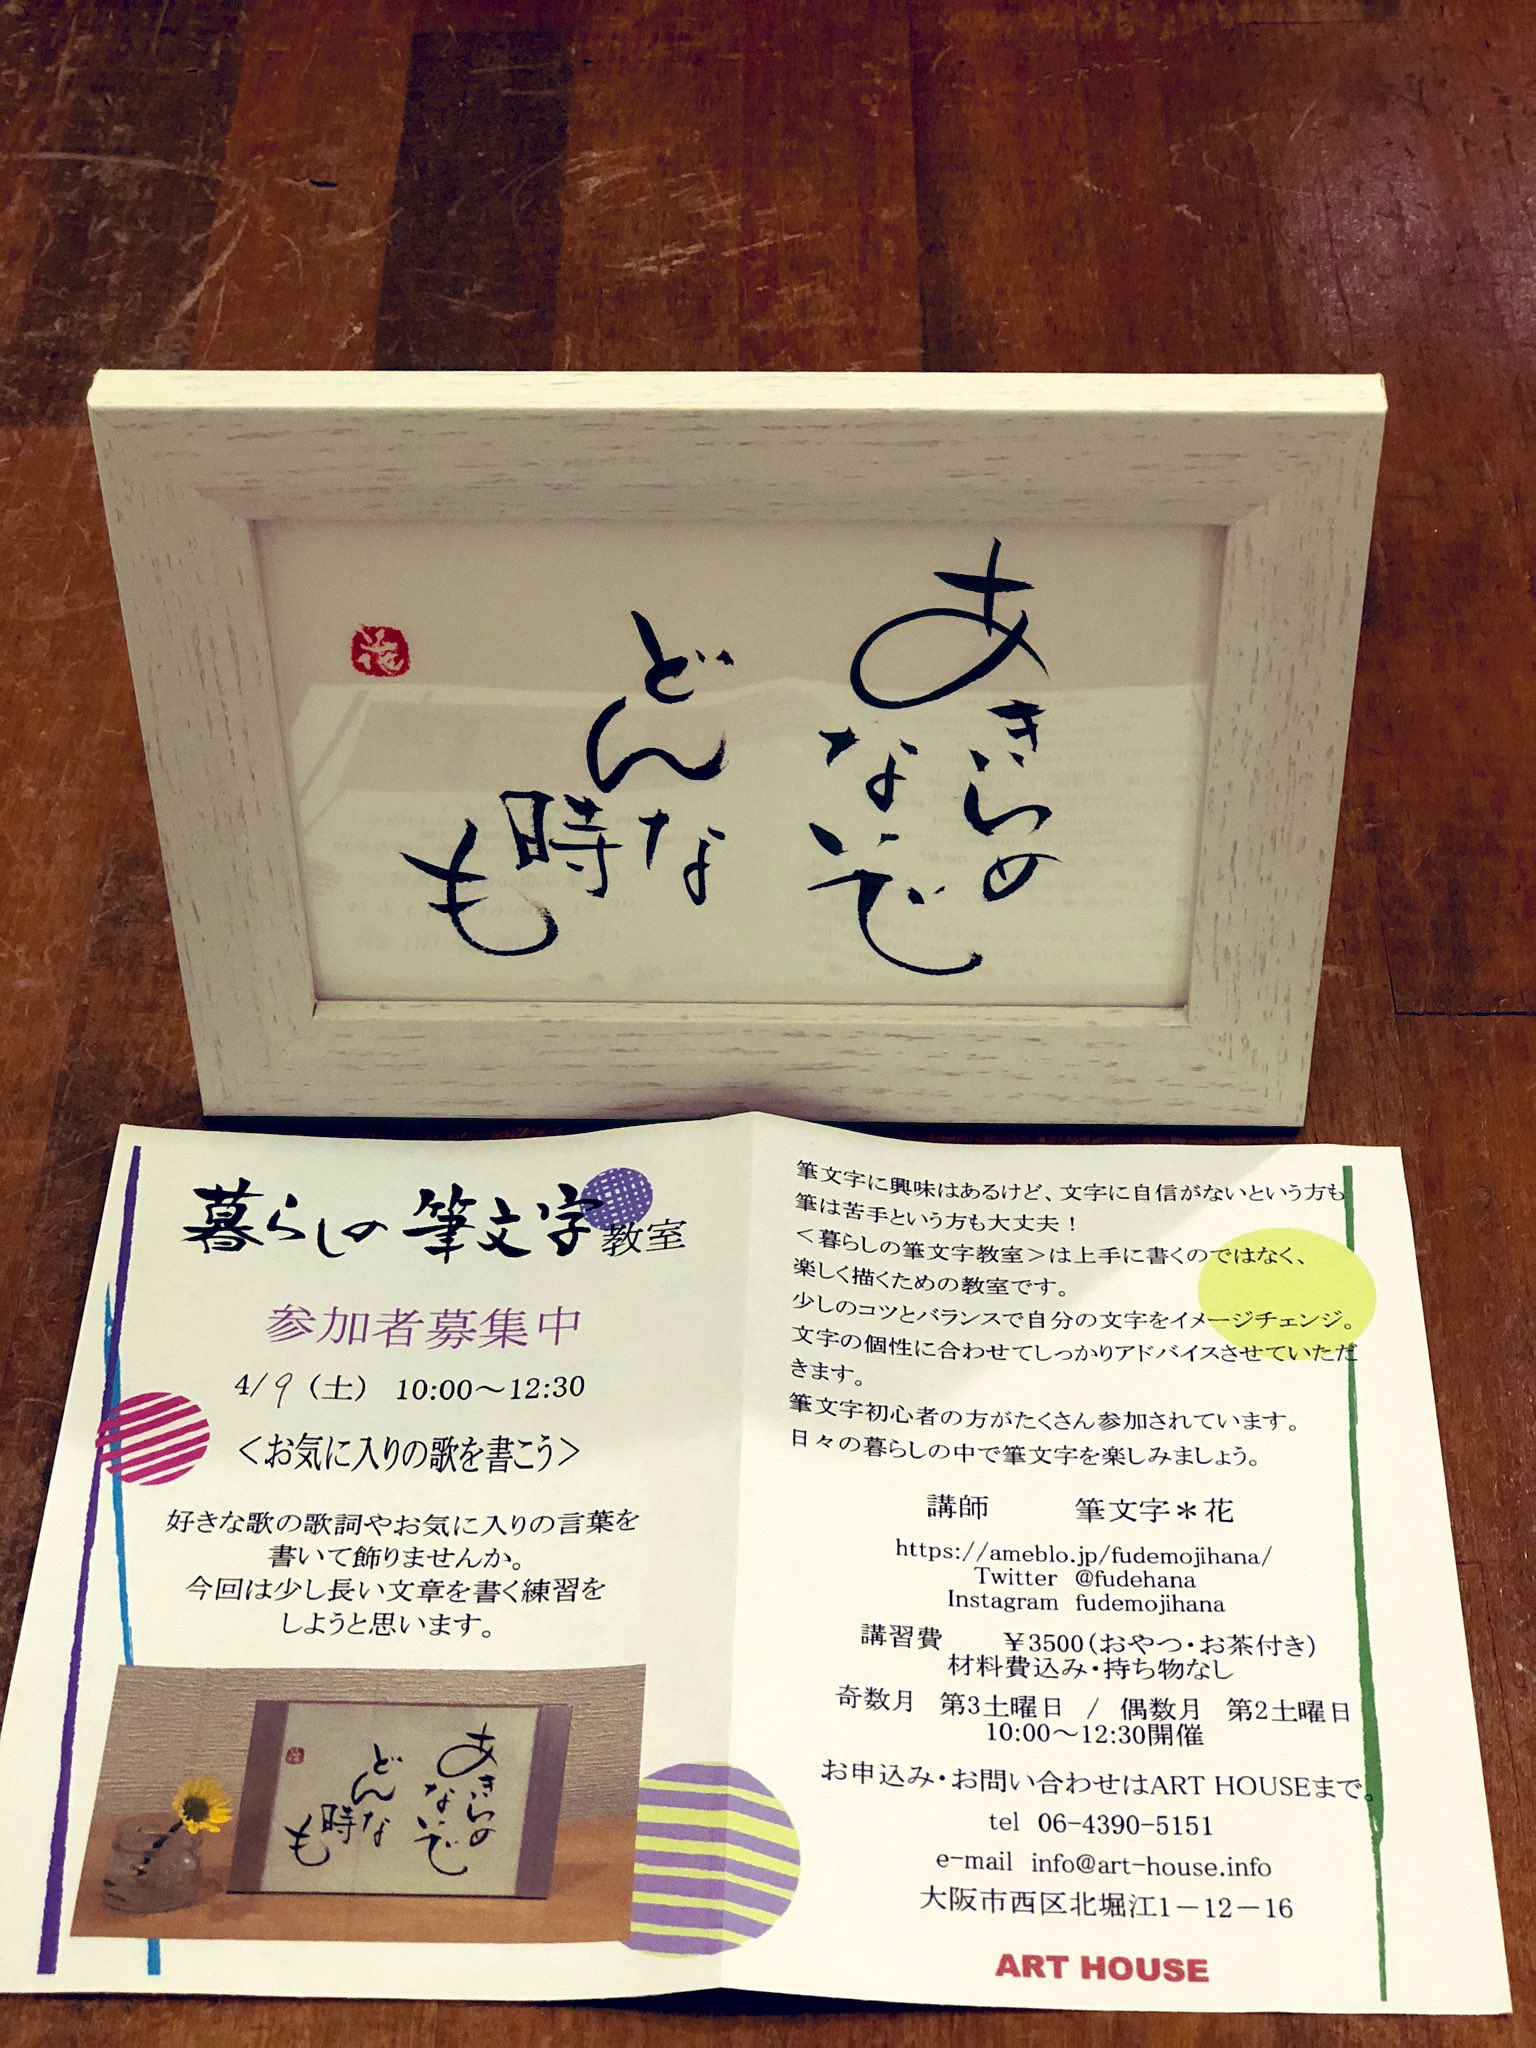 あきらめ
ないで
どんな
時
も
花
暮らしの筆文字教室
参加者募集中
4/9（土） 10:00～12:30
＜お気に入りの歌を書こう＞
好きな歌の歌詞やお気に入りの言葉を
書いて飾りませんか。
今回は少し長い文章を書く練習を
しようと思います。
あきらめ
ないで
どんな
時
も
筆文字に興味はあるけど、文字に自信がないという方も
筆は苦手という方も大丈夫！
＜暮らしの筆文字教室＞は上手に書くのではなく、
楽しく描くための教室です。
少しのコツとバランスで自分の文字をイメージチェンジ。
文字の個性に合わせてしっかりアドバイスさせていただ
きます。
筆文字初心者の方がたくさん参加されています。
日々の暮らしの中で筆文字を楽しみましょう。
講師 筆文字＊花
https://ameblo.jp/fudemojihana/
Twitter @fudehana
Instagram fudemojihana
講習費 ￥3500（おやつ・お茶付き）
材料費込み・持ち物なし
奇数月 第3土曜日 / 偶数月 第2土曜日
10:00～12:30開催
お申込み・お問い合わせはART HOUSEまで。
tel 06-4390-5151
e-mail info@art-house.info
大阪市西区北堀江1－12－16
ART HOUSE